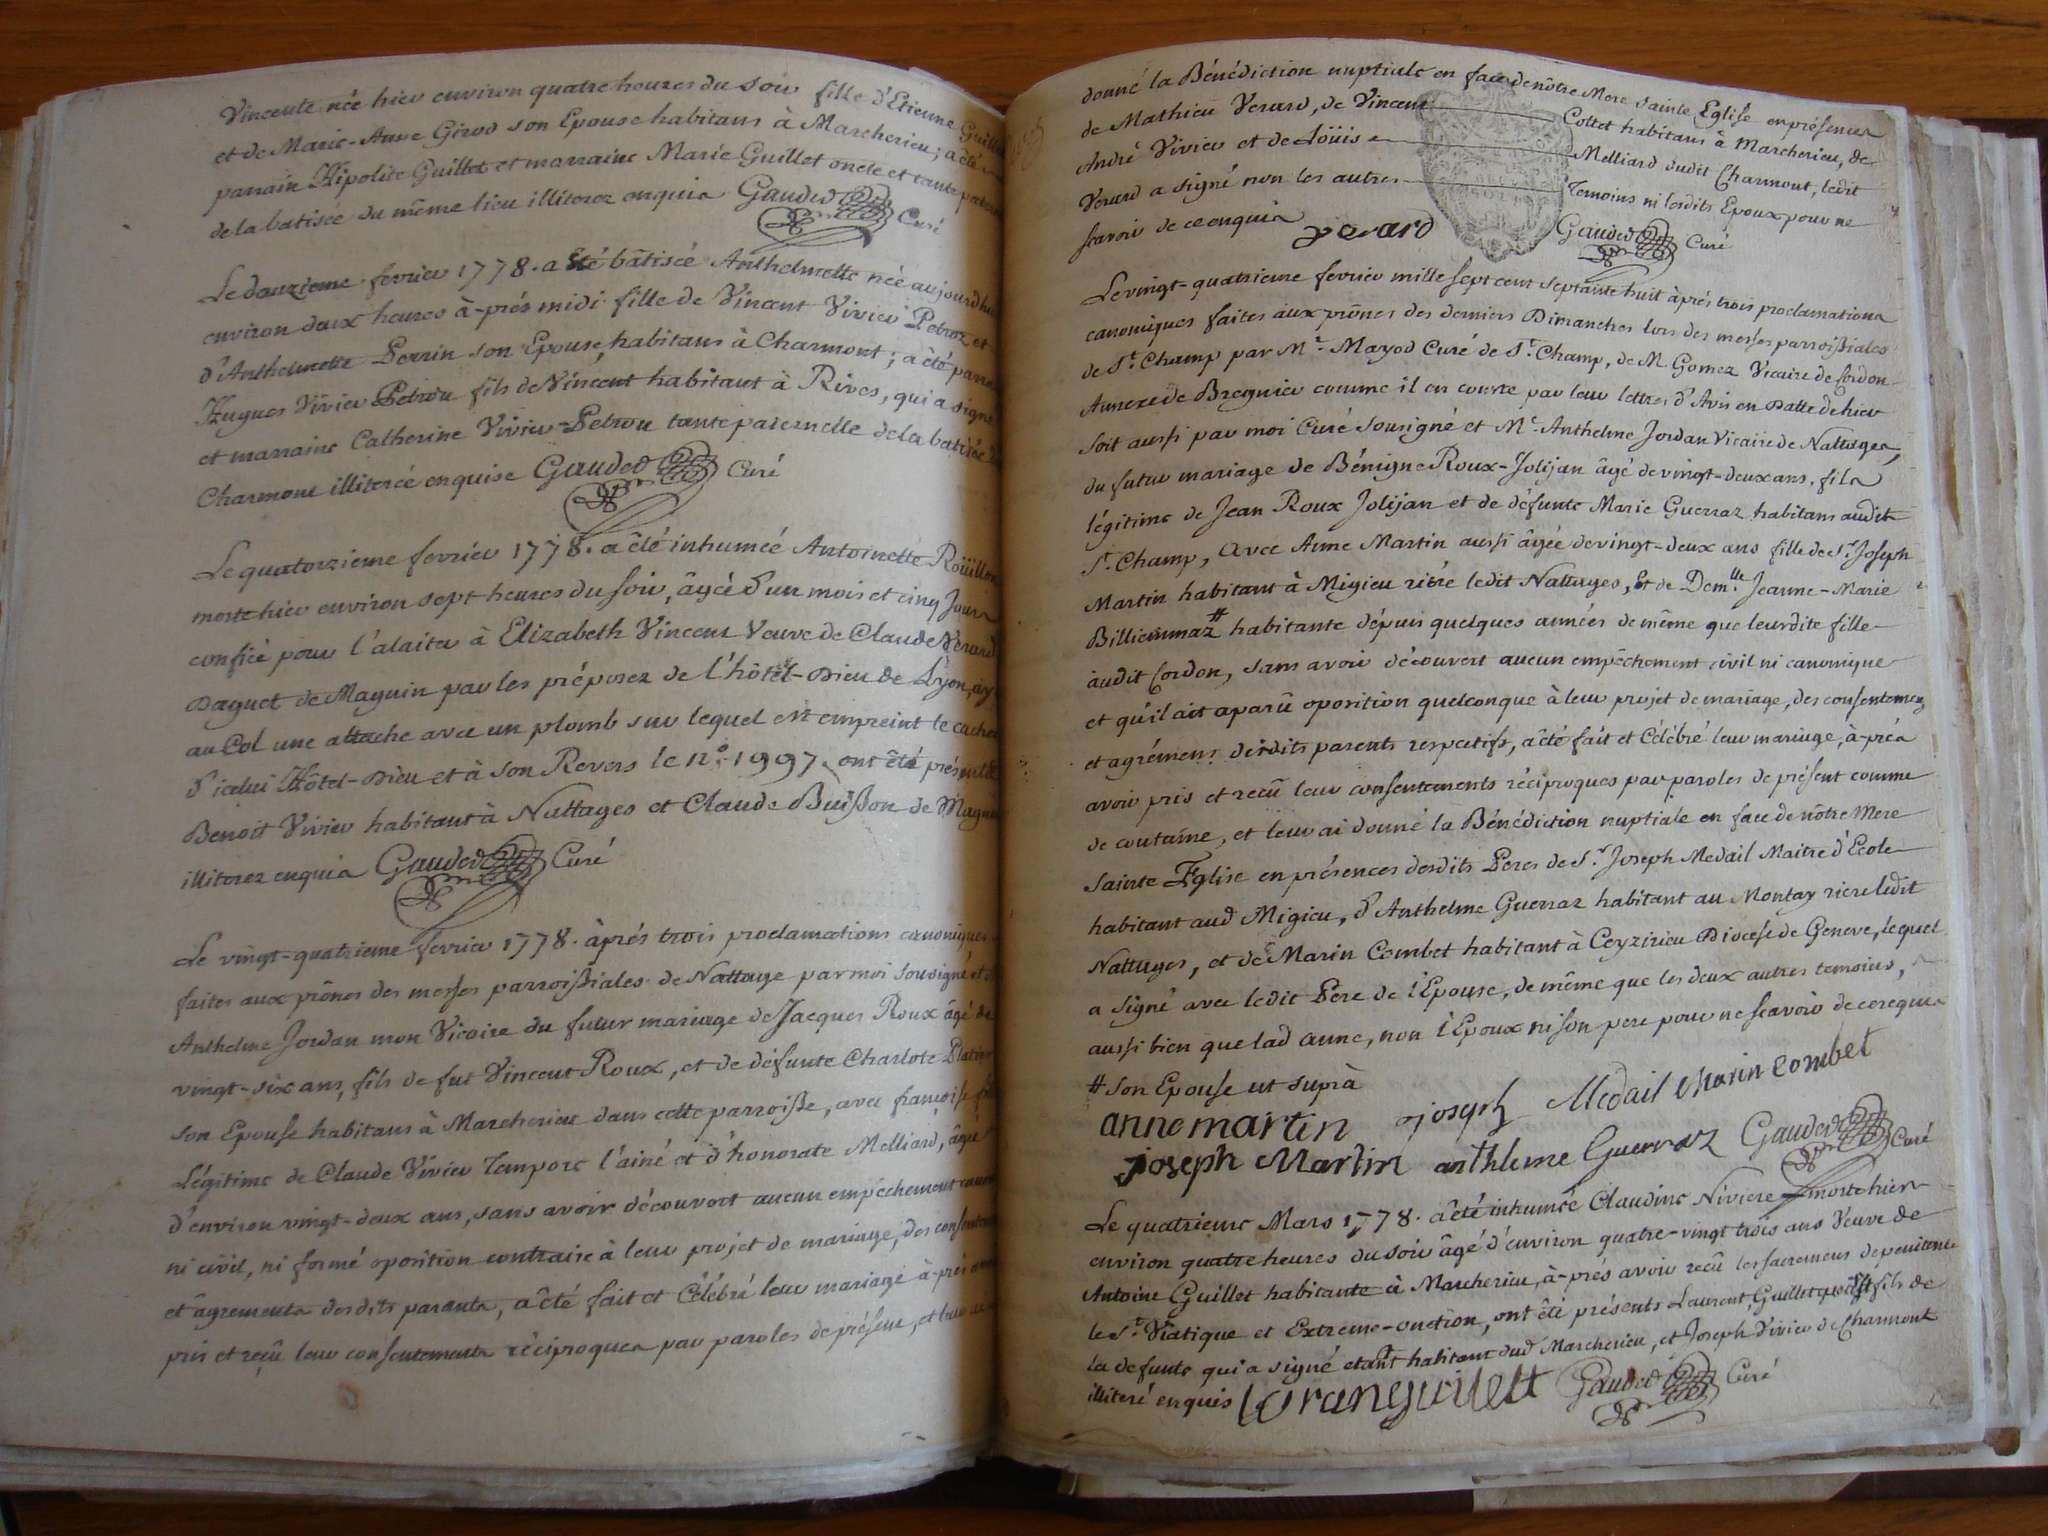 Vincente née hier environ quatre heures du soir fille d'Etienne Guillet
et de Marie-Anne Girod son Epouse habitans à Marcherieu; a été
parrain Hipolite Guillet et marraine Marie Guillet oncle et tante
de la batisée du même lieu illiterez enquis Gauded Curé
Le douzieme fevrier 1778. a été bâtiséé Anthelmette née aujourdhui
environ deux heures à-prés midi fille de Vincent Vivier Petroz et
d'Anthelmette Perrin son Epouse, habitans à Charmont; a été
Hugues Vivier Petrou fils de Vincent habitant à Rives, qui a signé
et marraine Catherine Vivier-Petrou tante paternelle de la batisée
Charmont illiteréé enquise Gauded Curé
Le quatorzieme fevrier 1778. a été inhuméé Antoinette Roüillon
morte hier environ sept heures du soir, âgéé d'un mois et cinq Jours
confiéé pour l'alaiter à Elizabeth Vincent Veuve de Claude Verard
Daguet de Magnin par les préposez de l'hôtel-Dieu de Lyon,
au Col une attache avec un plomb sur lequel est empreint le cachet
d'icelui Hôtel-Dieu et à son Revers le n.° 1997. ont été présents
Benoit Vivier habitant à Nattages et Claude Buisson de
illiterez enquis Gauded Curé
Le vingt-quatrieme fevrier 1778. àprés trois proclamations canoniques
faites aux prônes des messes parroissiales de Nattage par moi sousigné et
Anthelme Jordan mon Vicaire du futur mariage de Jacques Roux âgé de
vingt-six ans, fils de fut Vincent Roux, et de défunte Charlote
son Epouse habitans à Marcherieu dans cette parroisse, avec françoise
Légitime de Claude Vivier Tempore l'ainé et d'honorate Melliard, âgéé
d'environ vingt-deux ans, sans avoir découvert aucun empêchement
ni civil, ni formé oposition contraire à leur projet de mariage, des
et âgrements desdits parants, a été fait et Célébré leur mariage à-prés
pris et reçû leur consentements réciproques par paroles de présent, et leur
donné la Bénédiction nuptiale en face de nôtre Mere sainte Eglise en présences
de Mathieu Verard, de Vincent Collet habitans à Marcherieu, de
André Vivier et de Loüis Melliard dudit Charmont, ledit
Verard a signé non les autres Temoins ni lesdits Epoux pour ne
scavoir de ce enquis verard Gauded Curé
Le vingt-quatrieme fevrier mille sept cent septante huit àprés trois proclamations
canoniques faites aux prônes des derniers Dimanches lors des messes parroissiales
de St. Champ par Mr. Mayod Curé de St. Champ, de M. Gomez Vicaire de Cordon
Annexe de Bregnier comme il en conste par leur lettres d'Avis en Datte de hier
soit aussi par moi Curé sousigné et Mr. Anthelme Jordan Vicaire de Nattages,
du futur mariage de Bénigne Roux-Jolijan âgé de vingt-deux ans, fils
légitime de Jean Roux Jolijan et de défunte Marie Guerraz habitans audit
St. Champ, avec Anne Martin aussi âgée de vingt-deux ans fille de Sr. Joseph
Martin habitant à Migieu riére ledit Nattages, Et de Demlle. Jeanne-Marie
Billiemmaz # habitante dépuis quelques années de même que leurdite fille
audit Cordon, sans avoir découvert aucun empêchement civil ni canonique
et qu'il ait aparû oposition quelconque à leur projet de mariage, des consentemens
et agrémens desdits parents respectifs, a été fait et Célébré leur mariage, à-prés
avoir pris et reçû leur consentements réciproques par paroles de présent comme
de coutume, et leur ai donné la Bénédiction nuptiale en face de nôtre Mere
Sainte Eglise en présences desdits Peres de Sr. Joseph Medail Maitre d'Ecole
habitant aud Migieu, d'Anthelme Guerraz habitant au Montay riere ledit
Nattages, et de Marin Combet habitant à Ceyzirieu Diocese de Geneve, lequel
a signé avec ledit Pere de l'Epouse, de même que les deux autres temoins,
aussi bien que lad anne, non l'Epoux ni son pere pour ne scavoir de ce requis
# son Epouse ut suprà
anne martin joseph Medail Marin combet
joseph Martin anthleme Guerraz Gauded Curé
Le quatrieme Mars 1778. a été inhuméé Claudine Niviere morte hier
environ quatre heures du soir âgéé d'environ quatre-vingt trois ans Veuve de
Antoine Guillet habitante à Marcherieu, à-prés avoir reçû les sacremens de penitence
le St. Viatique et Extreme-onction, ont été présents Laurent Guillet fils de
la defunte qui a signé etant habitant dud Marcherieu, et Joseph Vivier de Charmont
illiteré enquis loranguillett Gauded Curé